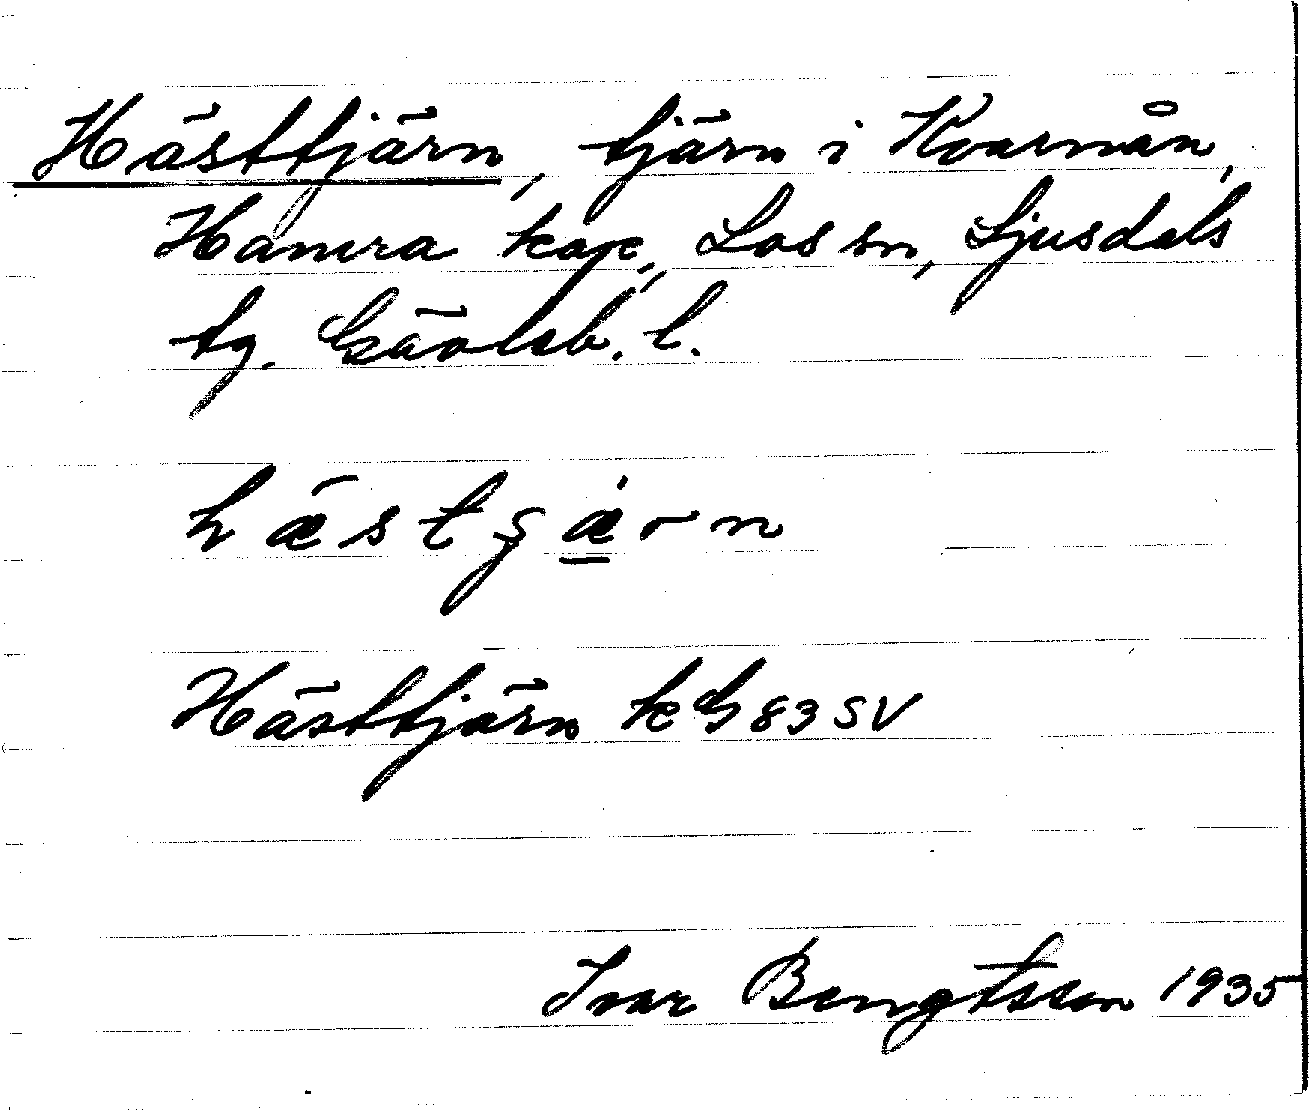 Hästtjärn, tjärn i Kvarnån,
Hamra kap., Los sn, Ljusdals
tg. Gävleb. l.
hæ̅stʂǽ̲rn
Hästtjärn kG 83 SV
Ivar Bengtsson 1935